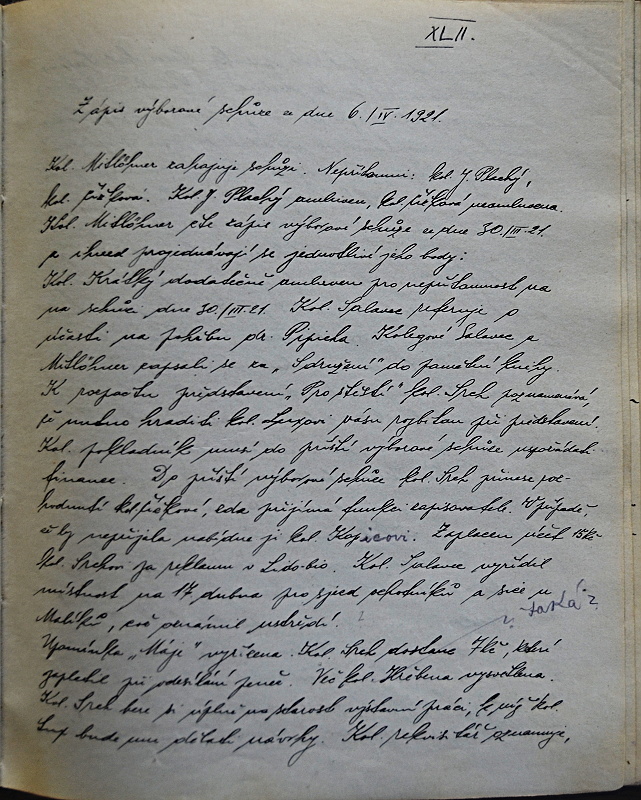 XLII.
Zápis výborové schůze ze dne 6./IV. 1921.
Kol. Mitlöhner zahajuje schůzi. Nepřítomni: kol. J. Plachý,
kol. Fričková. Kol. J. Plachý omluven, kol. Fričková neomluvena.
Kol. Mitlöhner čte zápis výborové schůze ze dne 30./III. 21.
a ihned projednávají se jednotlivé jeho body:
Kol. Krátký dodatečně omluven pro nepřítomnost na
na schůzi dne 30./III. 21. Kol. Salavec referuje o
účasti na pohřbu dr. Pipicha. Kolegové Salavec a
Mitlöhner zapsali se za „Sdružení" do pamětní knihy.
K rozpočtu představení „Pro štěstí" kol. Srch poznamenává,
že nutno hraditi kol. vásu rozbitou při představení.
Kol. pokladník musí do příští výborové schůze uspořádati
finance. Do příští výborové schůze kol. Srch přinese roz-
hodnutí kol. Fričkové, zda přijímá funkci zapisovatele. V případě,
že by nepřijala nabídne ji kol. Kopáčovi. Zaplacen účet 15 Kč
kol. Srchovi za reklamu v Lido-bio. Kol. Salavec vyřídil
místnost na 17 dubna pro sjezd ochotníků a sice u
Malířů, což oznámil ústředí. ?
?
Upomínka „Máje" vyřízena. Kol. Srch dostane 7 Kč, které
zaplatil při odesílání peněz. Věc kol. Hřebena vysvětlena.
Kol. Srch bere si úplně na starost výstavní práci, ku níž kol.
bude mu dělati návrhy. Kol. rekvisitář oznamuje,